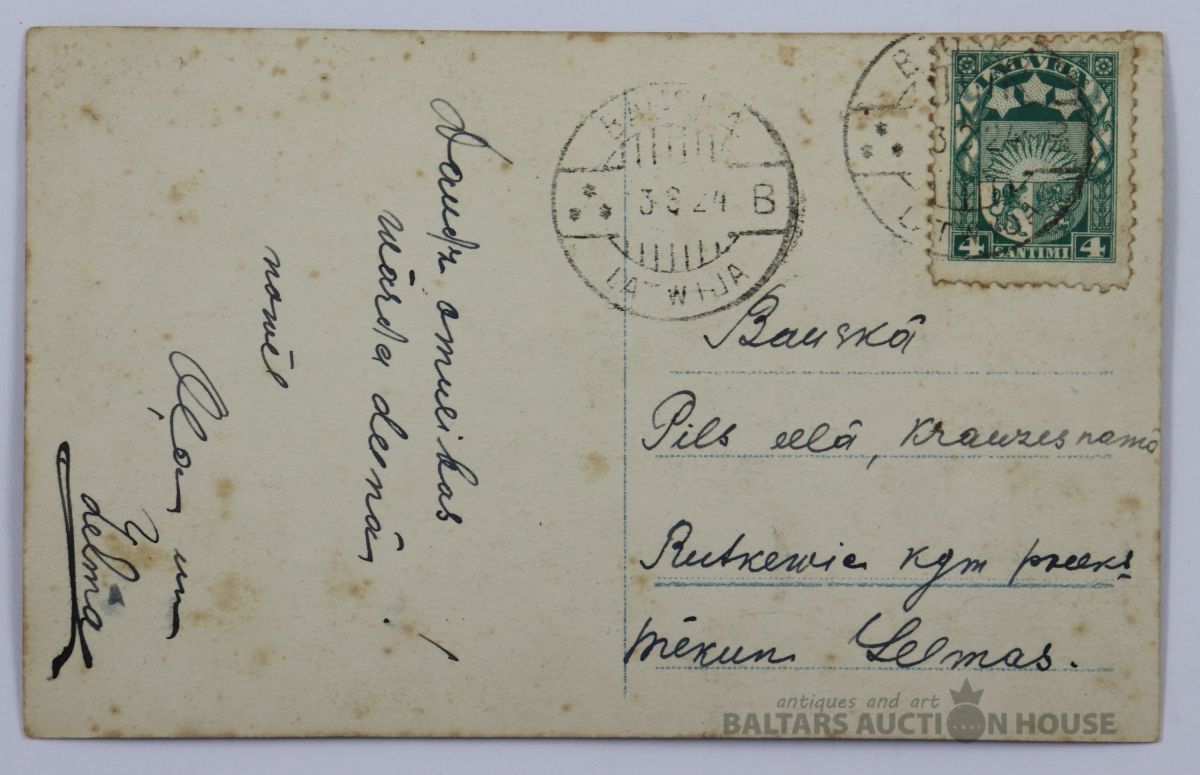 Daudz omulibas
wārda deenā,!
nowēl
un
Zelma
BAUSKA
3 8 24 B
LATWIJA
LATVIJA
4 SANTIMI 4
Bauskā
Pils eelā, Krauzes namā
Rutkewic kgm preeks
Mēkun Selmas.
antiques and art
BALTARS AUCTION HOUSE